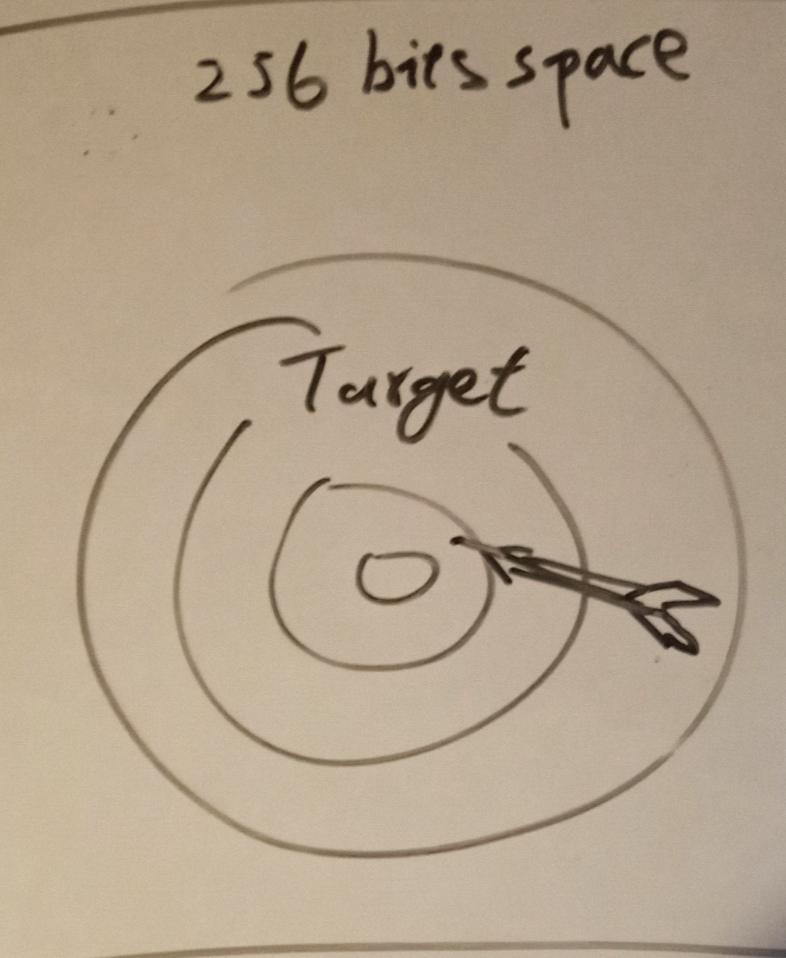 256 bits space
Target